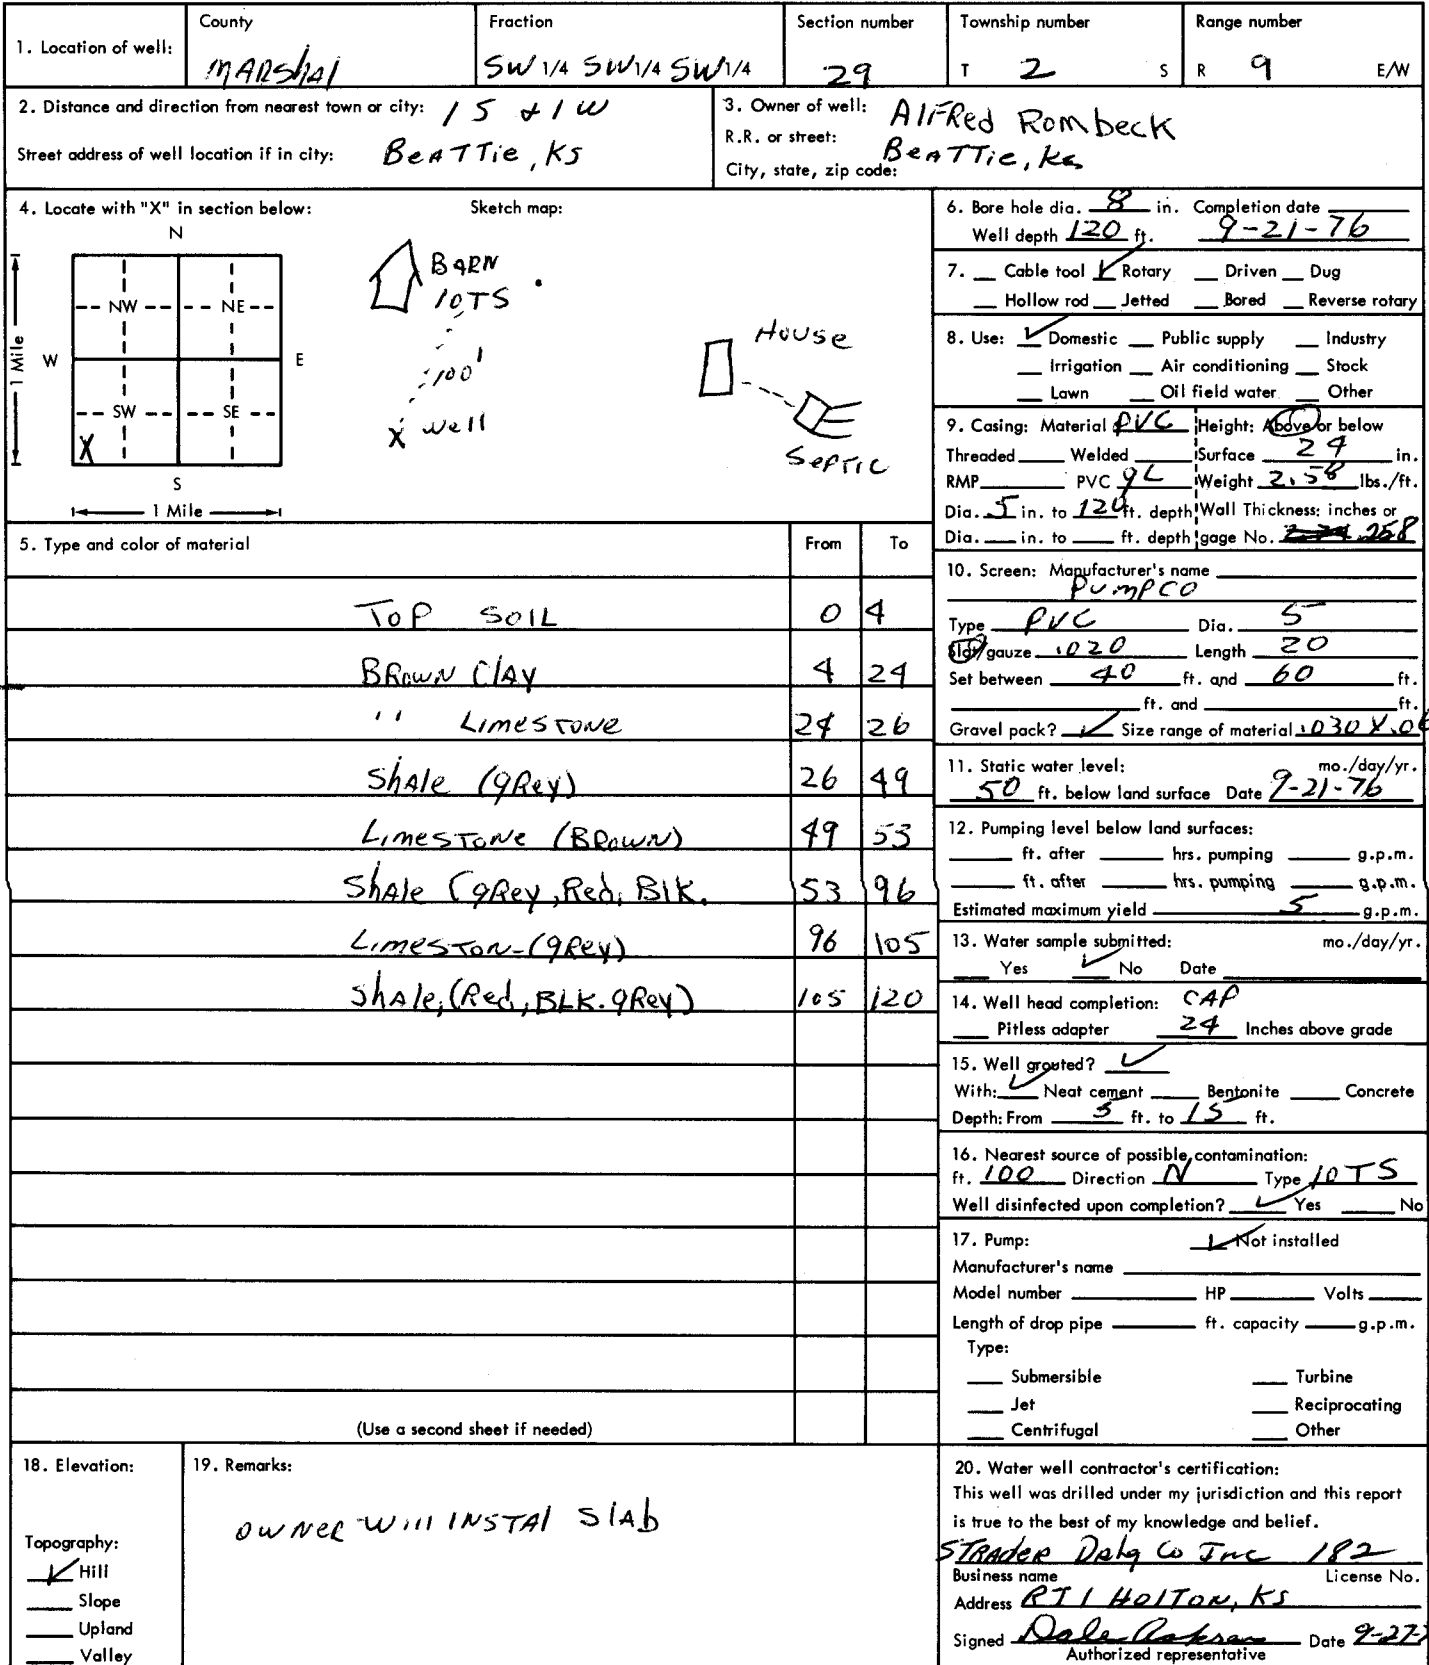 1. Location of well:
County
MARShAl
Fraction
SW 1/4 SW 1/4 SW 1/4
Section number
29
Township number
T 2 S
Range number
R 9 E/W
2. Distance and direction from nearest town or city: 1 S & 1 W
Street address of well location if in city: BeATTie, KS
3. Owner of well: AlFRed Rombeck
R.R. or street:
City, state, zip code: BeATTie, ks
4. Locate with "X" in section below:
N
NW NE
W E
SW SE
X
S
1 Mile
1 Mile
Sketch map:
BARN
10TS
100'
X well
HOUSE
SepTic
5. Type and color of material From To
TOP SOIL 0 4
BROWN ClAY 4 24
'' LIMESTONE 24 26
ShAle (gRey) 26 49
LIMESTONE (BROWN) 49 53
ShAle (gRey, Red, Blk. 53 96
LIMESTON-(gRey) 96 105
ShAle, (Red, BLK. gRey) 105 120
(Use a second sheet if needed)
6. Bore hole dia. 8 in. Completion date
Well depth 120 ft. 9-21-76
7. Cable tool ✓ Rotary Driven Dug
Hollow rod Jetted Bored Reverse rotary
8. Use: ✓ Domestic Public supply Industry
Irrigation Air conditioning Stock
Lawn Oil field water Other
9. Casing: Material PVC Height: Above or below
Threaded Welded Surface 24 in.
RMP PVC gL Weight 2.58 lbs./ft.
Dia. 5 in. to 120 ft. depth Wall Thickness: inches or
Dia. in. to ft. depth gage No. .258
10. Screen: Manufacturer's name
PUMPCO
Type PVC Dia. 5
Slot/gauze .020 Length 20
Set between 40 ft. and 60 ft.
ft. and ft.
Gravel pack? ✓ Size range of material .030 X .06
11. Static water level: mo./day/yr.
50 ft. below land surface Date 9-21-76
12. Pumping level below land surfaces:
ft. after hrs. pumping g.p.m.
ft. after hrs. pumping g.p.m.
Estimated maximum yield 5 g.p.m.
13. Water sample submitted: mo./day/yr.
Yes ✓ No Date
14. Well head completion: CAP
Pitless adapter 24 Inches above grade
15. Well grouted? ✓
With: ✓ Neat cement Bentonite Concrete
Depth: From 5 ft. to 15 ft.
16. Nearest source of possible contamination:
ft. 100 Direction N Type 10TS
Well disinfected upon completion? ✓ Yes No
17. Pump: ✓ Not installed
Manufacturer's name
Model number HP Volts
Length of drop pipe ft. capacity g.p.m.
Type:
Submersible Turbine
Jet Reciprocating
Centrifugal Other
18. Elevation:
Topography:
✓ Hill
Slope
Upland
Valley
19. Remarks:
OWNER Will INSTAl SlAb
20. Water well contractor's certification:
This well was drilled under my jurisdiction and this report
is true to the best of my knowledge and belief.
STRADER Drlg Co Inc 182
Business name License No.
Address RT 1 HOlTON, KS
Signed Dale Date 9-27-
Authorized representative